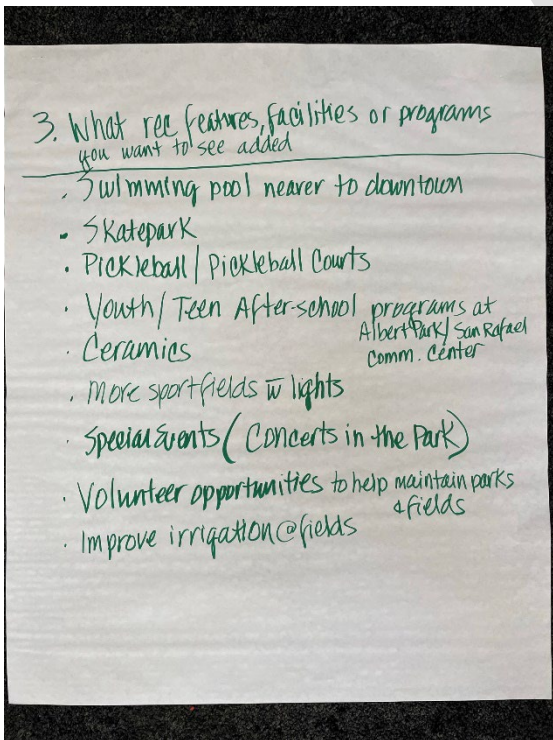 3. What rec features, facilities or programs
you want to see added
. Swimming pool nearer to downtown
- Skatepark
. Pickleball / Pickleball Courts
. Youth / Teen After-school programs at
Albert Park / San Rafael
Comm. Center
. Ceramics
. More sportfields w̅ lights
. Special Events (Concerts in the Park)
. Volunteer opportunities to help maintain parks
& fields
. Improve irrigation @ fields